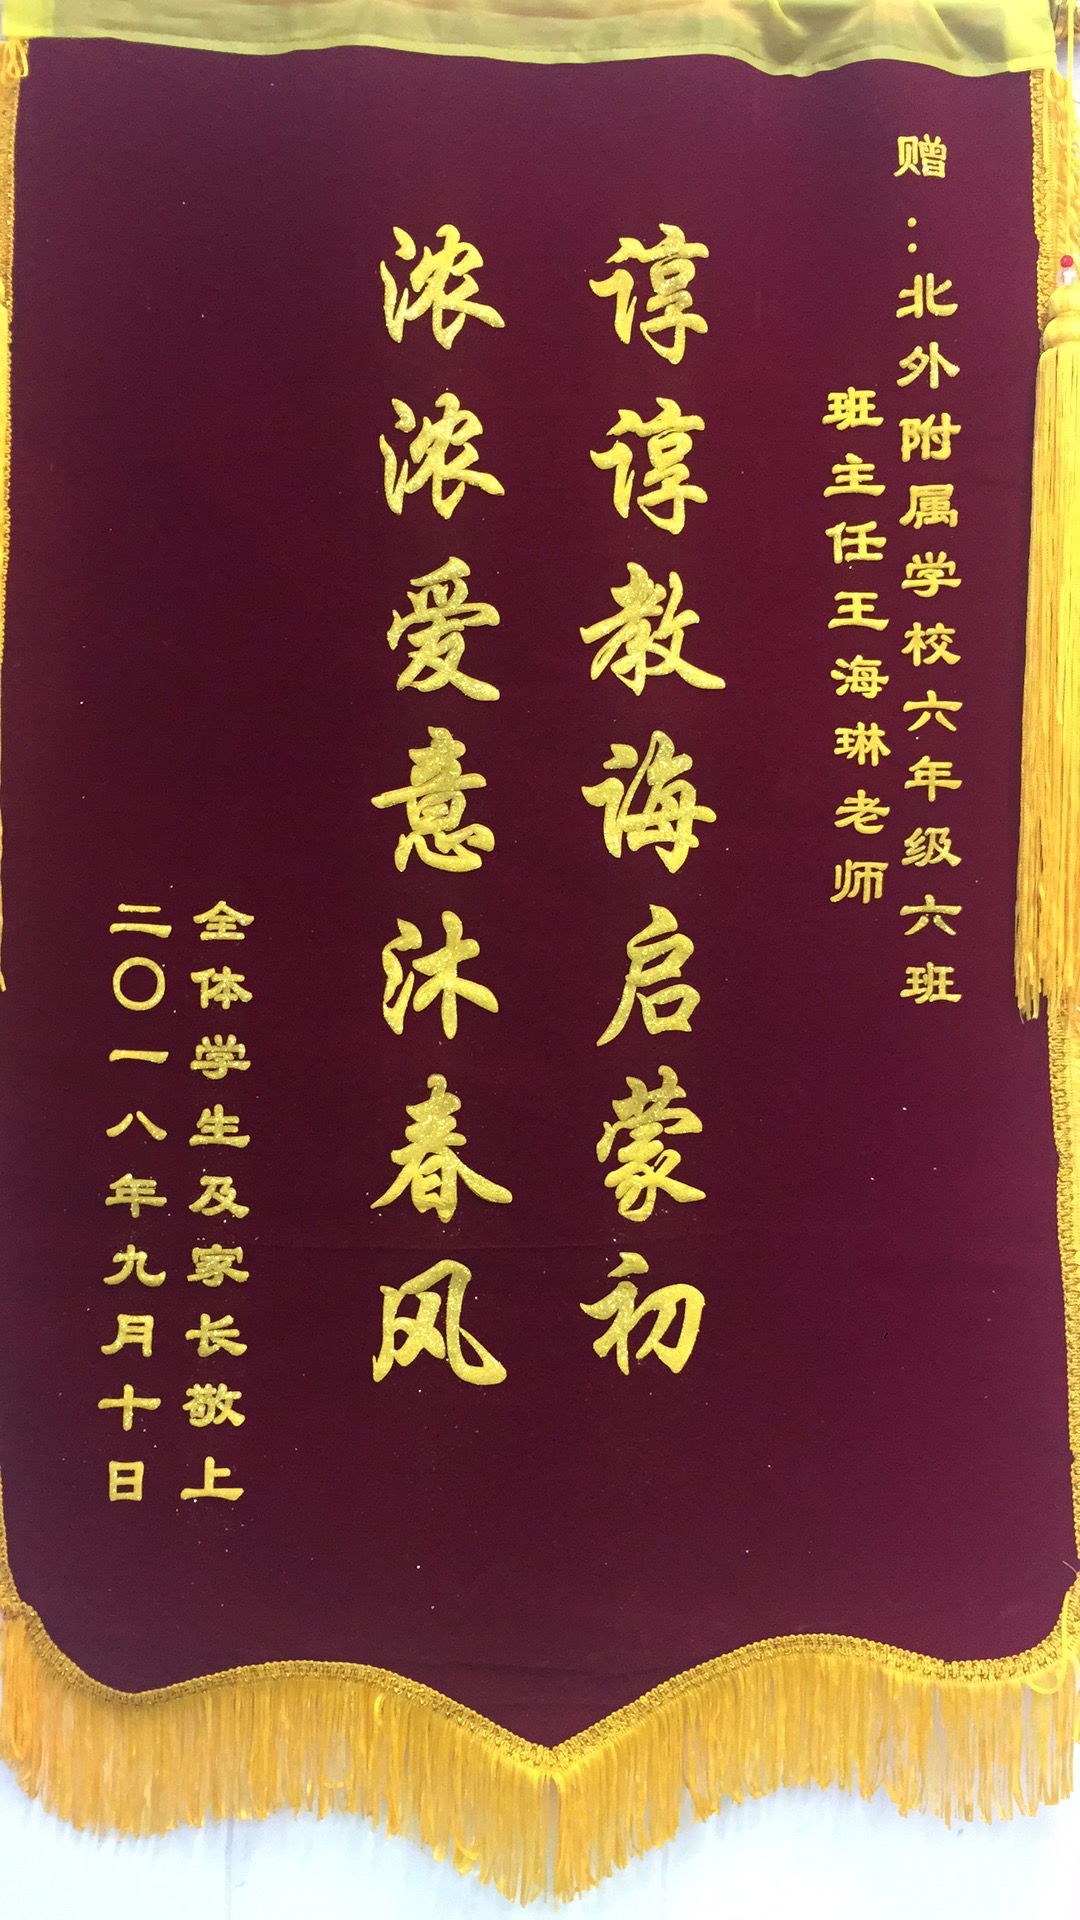 赠：北外附属学校六年级六班
班主任王海琳老师
谆谆教诲启蒙初
浓浓爱意沐春风
全体学生及家长敬上
二〇一八年九月十日